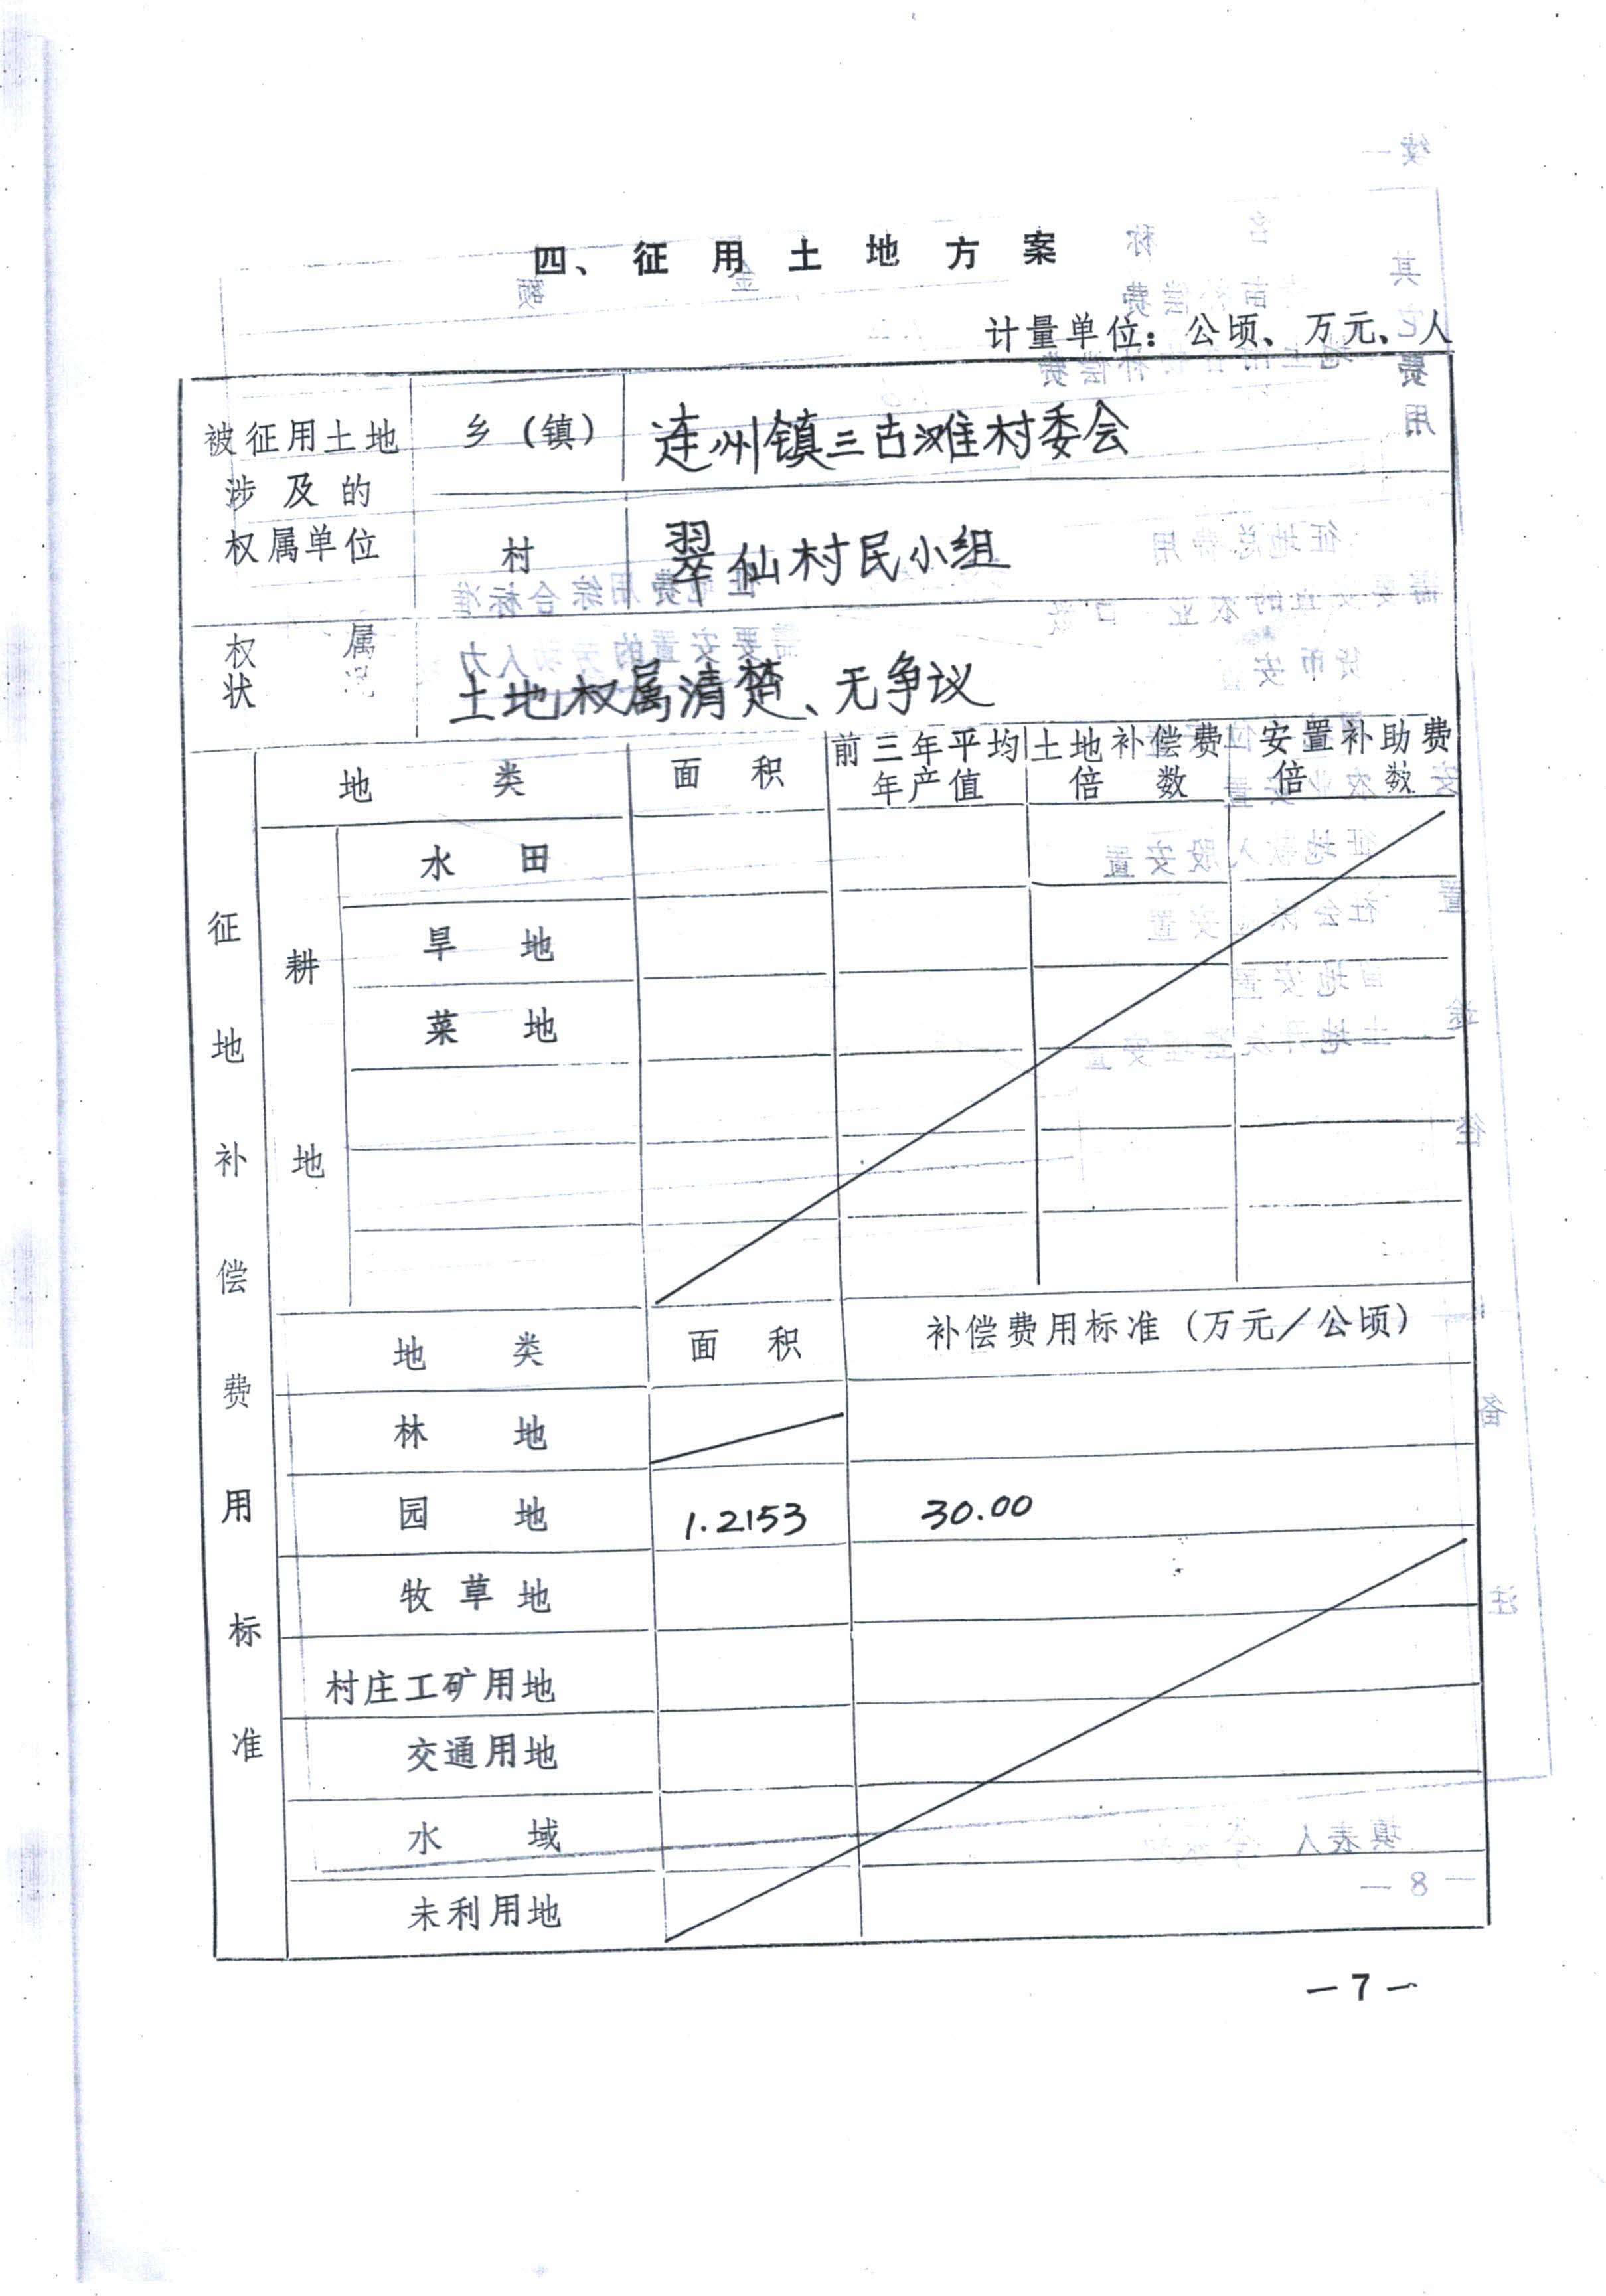 四、征用土地方案
计量单位：公顷、万元、人
被征用土地
涉及的
权属单位
乡（镇）
连州镇三古滩村委会
村
翠仙村民小组
权属
状况
土地权属清楚、无争议
征地补偿费用标准
地类
面积
前三年平均
年产值
土地补偿费
倍数
安置补助费
倍数
耕地
水田
旱地
菜地
地类
面积
补偿费用标准（万元／公顷）
林地
园地
1.2153
30.00
牧草地
村庄工矿用地
交通用地
水域
未利用地
—7—